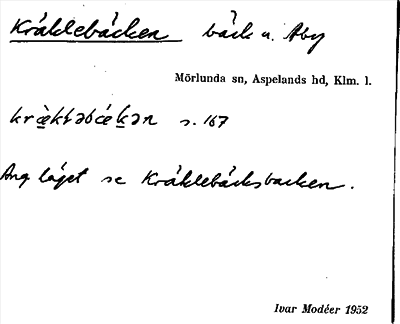 Kräklebäcken bäck u. Åby
Mörlunda sn, Aspelands hd, Klm. l.
kræ̀kləbǽkən s. 167
Ang läget se Kräklebäcksbacken.
Ivar Modéer 1952